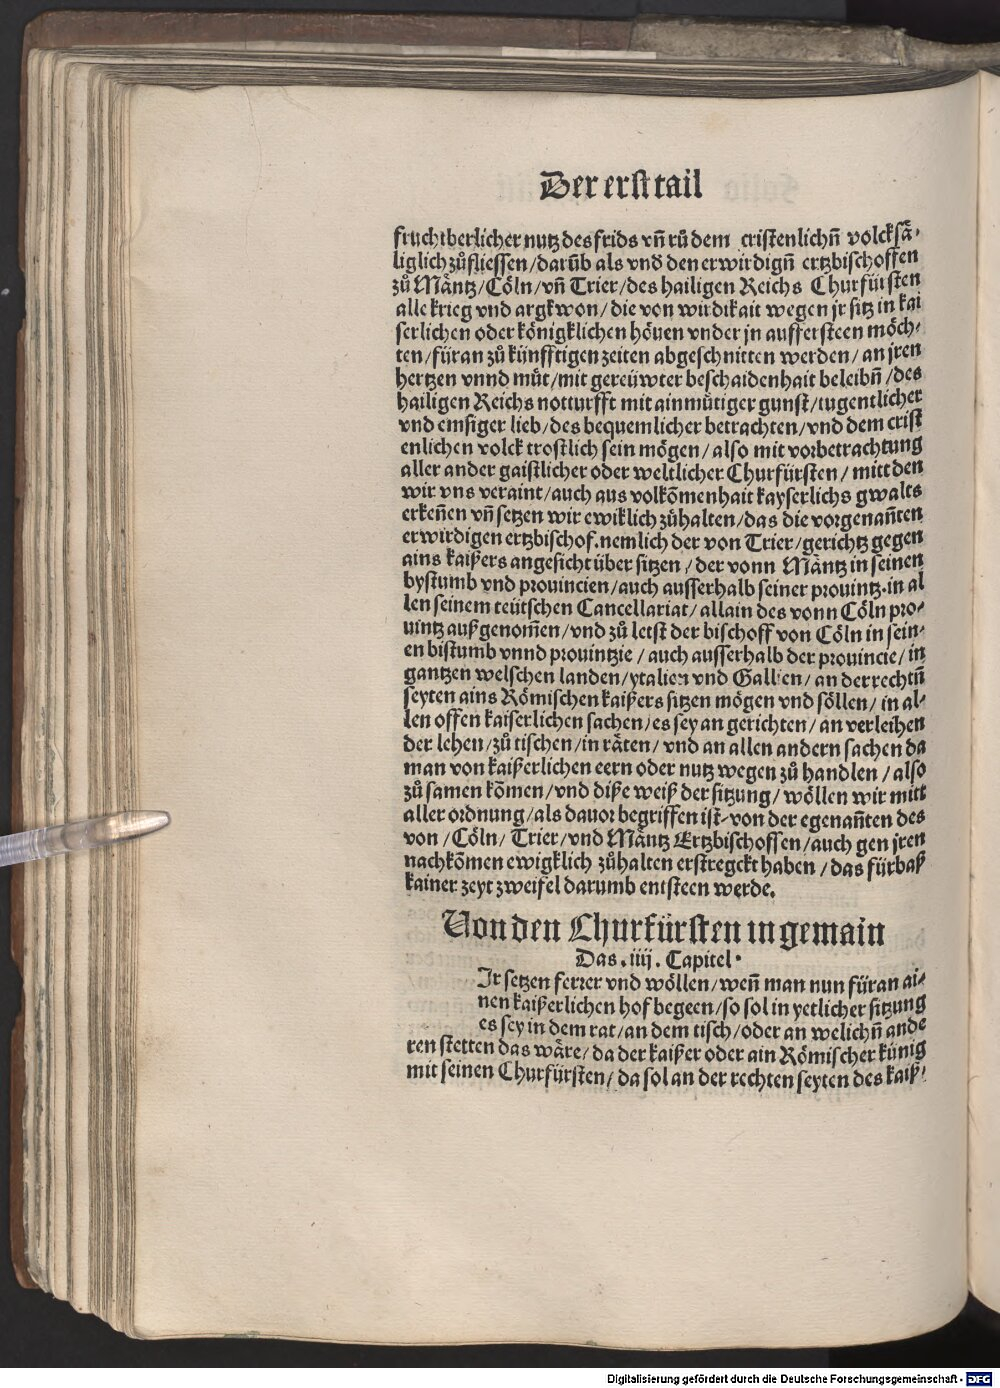 Der erst tail
fruchtberlicher nutz des frids vn̄ rů dem cristenlichn̄ volck så⸗
liglich zůfliessen/darūb als vnd den erwirdign̄ ertzbischoffen
zů Måntz/Cöln/vn̄ Trier/des hailigen Reichs Churfürsten
alle krieg vnd argkwon/die von wirdikait wegen jr sitz in kai
serlichen oder königklichen höuen vnder jn auffersteen möch⸗
ten/füran zů künfftigen zeiten abgeschnitten werden/an jren
hertzen vnnd můt/mit gereüwter beschaidenhait beleibn̄/des
hailigen Reichs notturfft mit ainmůtiger gunst/tugentlicher
vnd emsiger lieb/des bequemlicher betrachten/vnd dem crist
enlichen volck trostlich sein mögen/also mit vorbetrachtung
aller ander gaistlicher oder weltlicher Churfürsten/mitt den
wir vns veraint/auch aus volkōmenhait kayserlichs gwalts
erkeñen vn̄ setzen wir ewiklich zůhalten/das die vorgenañten
erwirdigen ertzbischof.nemlich der von Trier/gerichtz gegen
ains kaißers angesicht über sitzen/der vonn Måntz in seinen
bystumb vnd prouincien/auch ausserhalb seiner prouintz.in al
len seinem teütschen Cancellariat/allain des vonn Cöln pro⸗
uintz außgenom̄en/vnd zů letst der bischoff von Cöln in sein⸗
en bistumb vnnd prouintzie/auch ausserhalb der prouincie/in
gantzen welschen landen/ytalien vnd Gallien/an der rechtn̄
seyten ains Römischen kaißers sitzen mögen vnd söllen/in al⸗
len offen kaiserlichen sachen/es sey an gerichten/an verleihen
der lehen/zů tischen/in råten/vnd an allen andern sachen da
man von kaißerlichen eern oder nutz wegen zů handlen/also
zů samen kōmen/vnd diße weiß der sitzung/wöllen wir mitt
aller ordnung/als dauor begriffen ist⸗von der egenañten des
von/Cöln/Trier/vnd Måntz Ertzbischoffen/auch gen jren
nachkōmen ewigklich zůhalten erstregckt haben/das fürbaß
kainer zeyt zweifel darumb entsteen werde.
Von den Churfürsten in gemain
Das.iiij.Capitel.
Ir setzen ferrer vnd wöllen/weñ man nun füran ai⸗
nen kaißerlichen hof begeen/so sol in yetlicher sitzung
es sey in dem rat/an dem tisch/oder an welichn̄ ande
ren stetten das wåre/da der kaißer oder ain Römischer künig
mit seinen Churfürsten/da sol an der rechten seyten des kaiß⸗
Digitalisierung gefördert durch die Deutsche Forschungsgemeinschaft - DFG